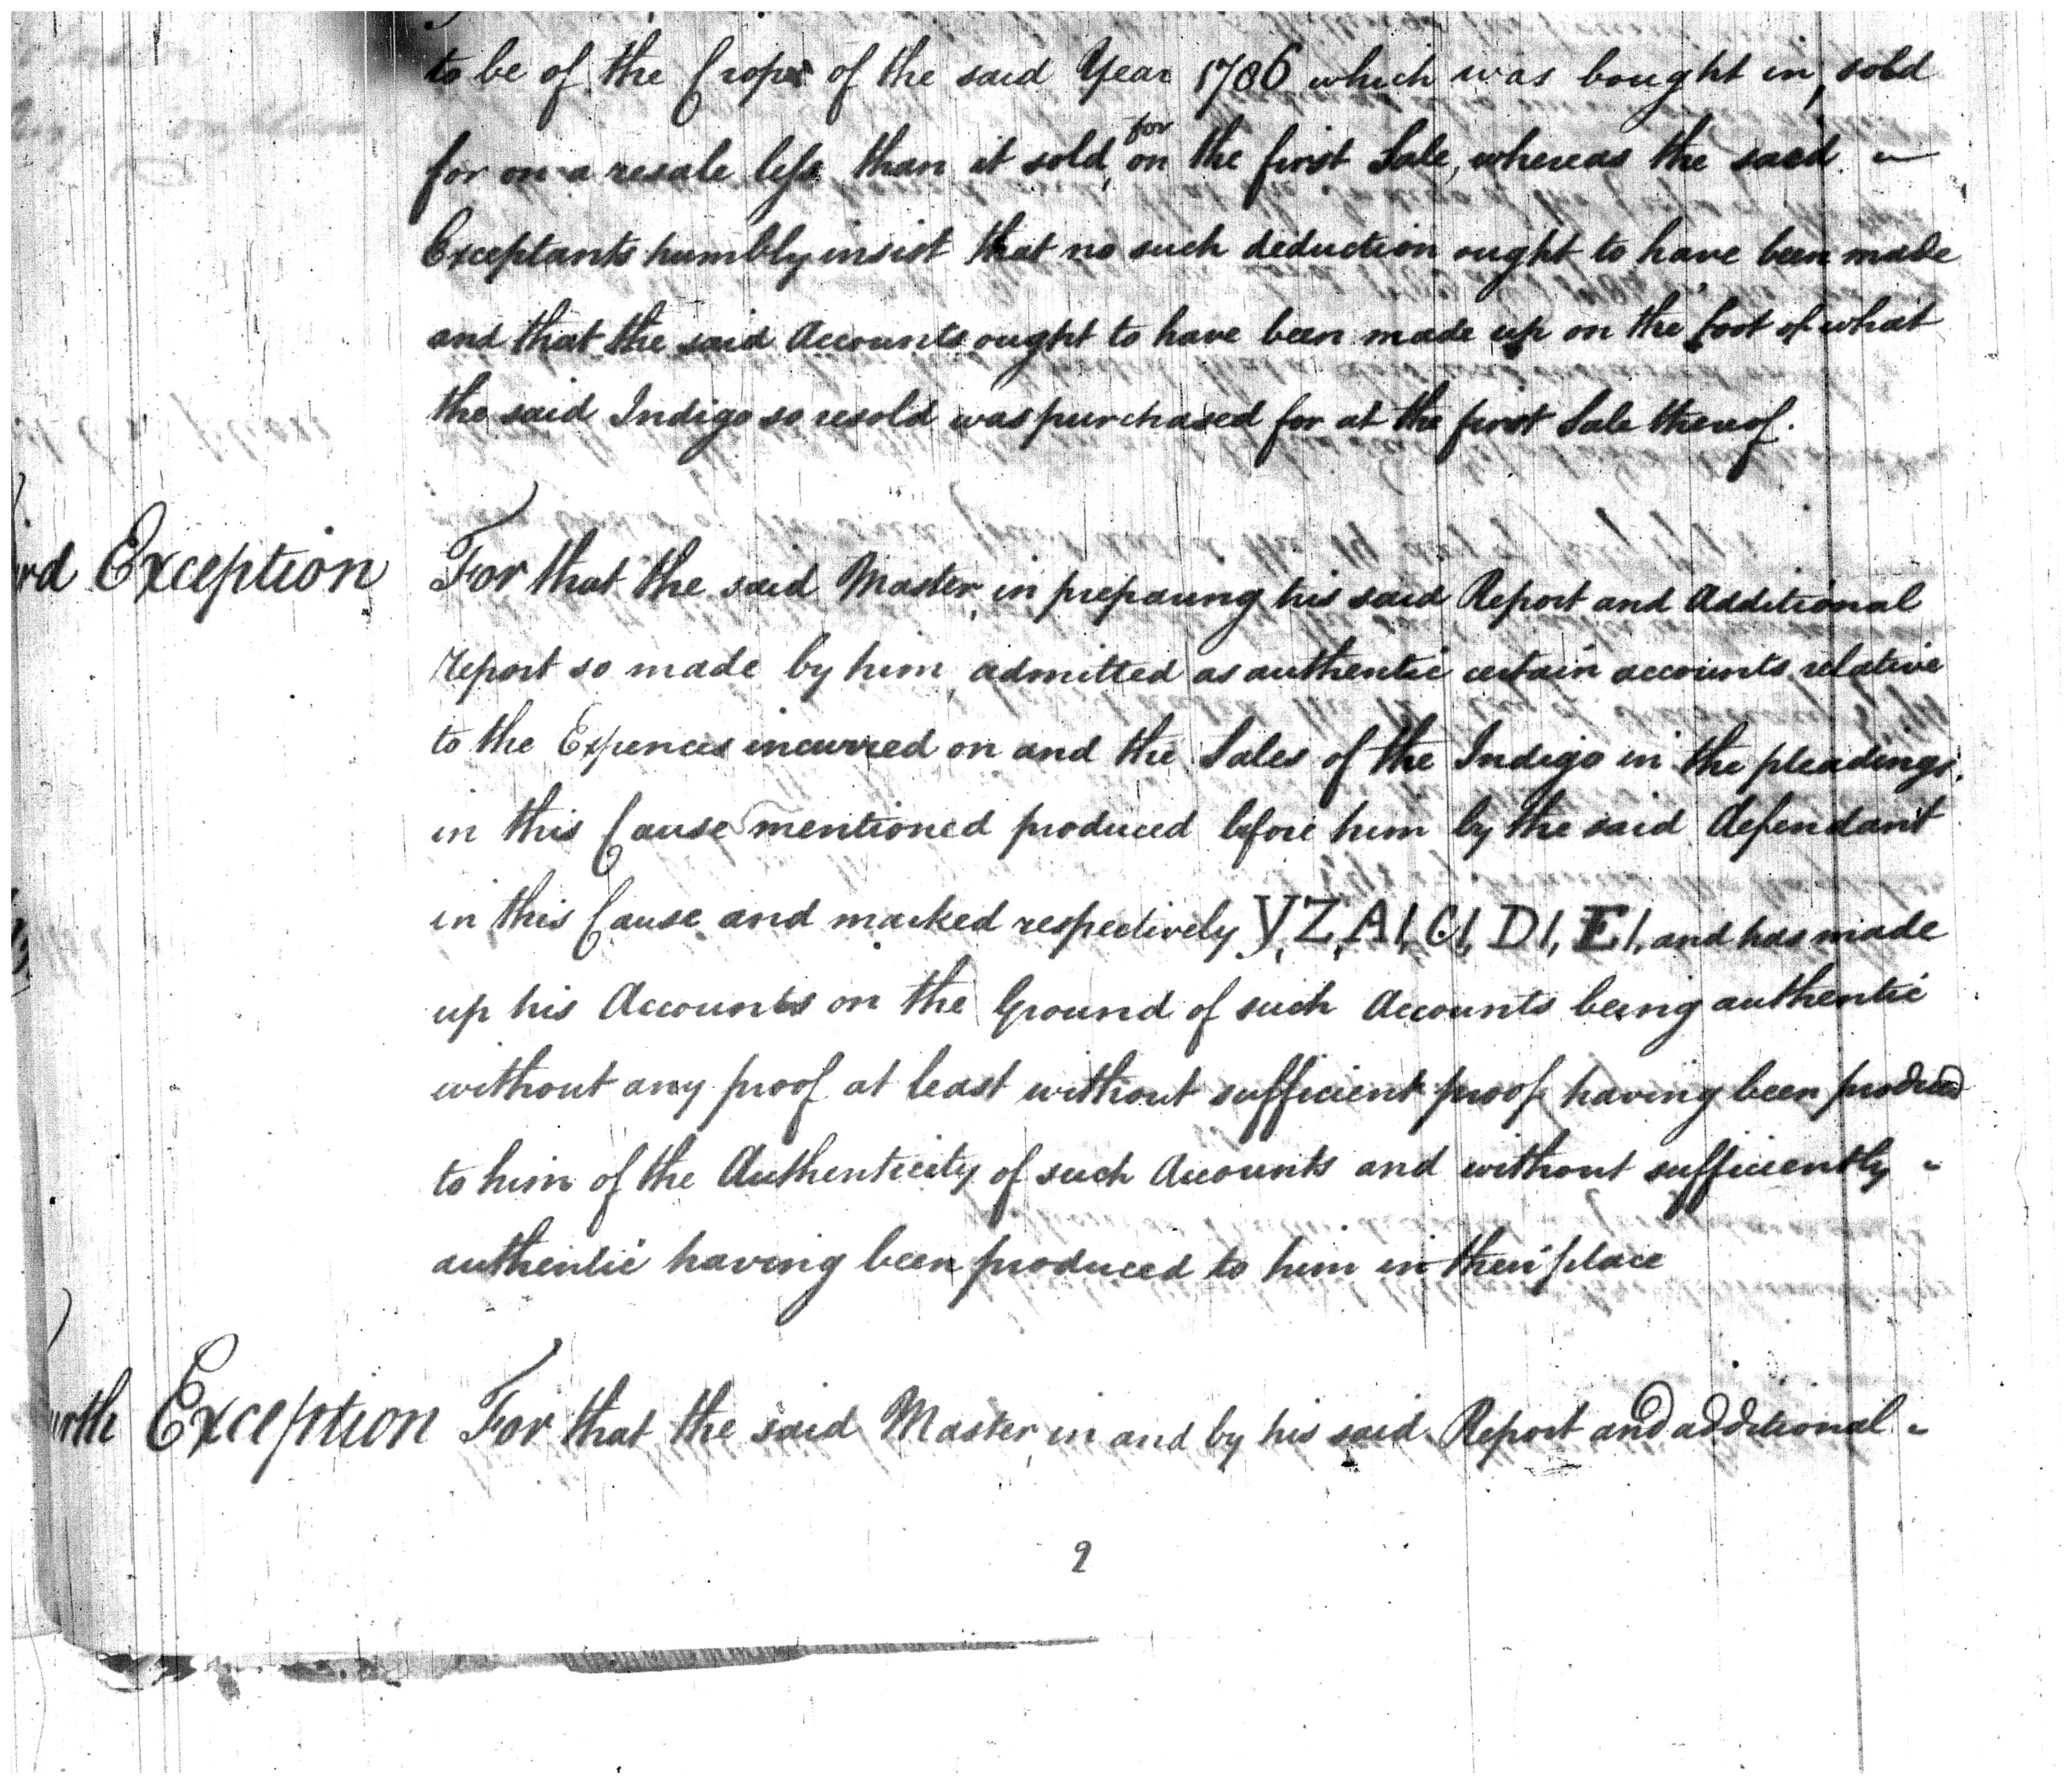 to be of the Crops of the said Year 1786 which was bought in, sold
for on a resale less than it sold for on the first Sale, whereas the said
Exceptants humbly insist that no such deduction ought to have been made
and that the said Accounts ought to have been made up on the foot of what
the said Indigo so resold was purchased for at the first Sale thereof.
rd Exception For that the said Master in preparing his said Report and Additional
report so made by him admitted as authentic certain accounts relative
to the Expences incurred on and the Sales of the Indigo in the pleadings
in this Cause mentioned produced before him by the said Defendant
in this Cause and marked respectively Y, Z, A1, C1, D1, E1, and has made
up his Accounts on the Ground of such Accounts being authentic
without any proof at least without sufficient proof having been produced
to him of the Authenticity of such Accounts and without sufficiently
authentic having been produced to him in their place
urth Exception For that the said Master in and by his said Report and additional
2